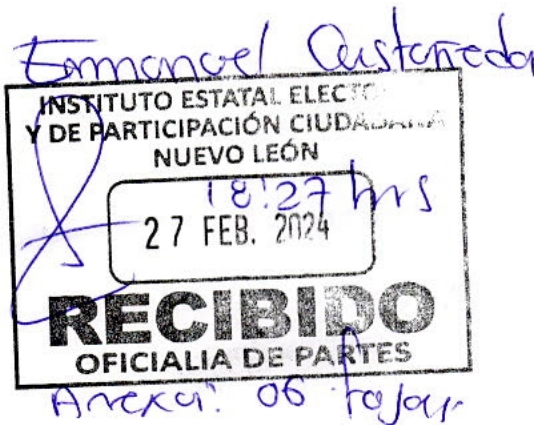 Emmanuel Castañeda
INSTITUTO ESTATAL ELECTO
Y DE PARTICIPACIÓN CIUDADANA
NUEVO LEÓN
18:27 hrs
27 FEB. 2024
RECIBIDO
OFICIALIA DE PARTES
Anexa: 06 fojas